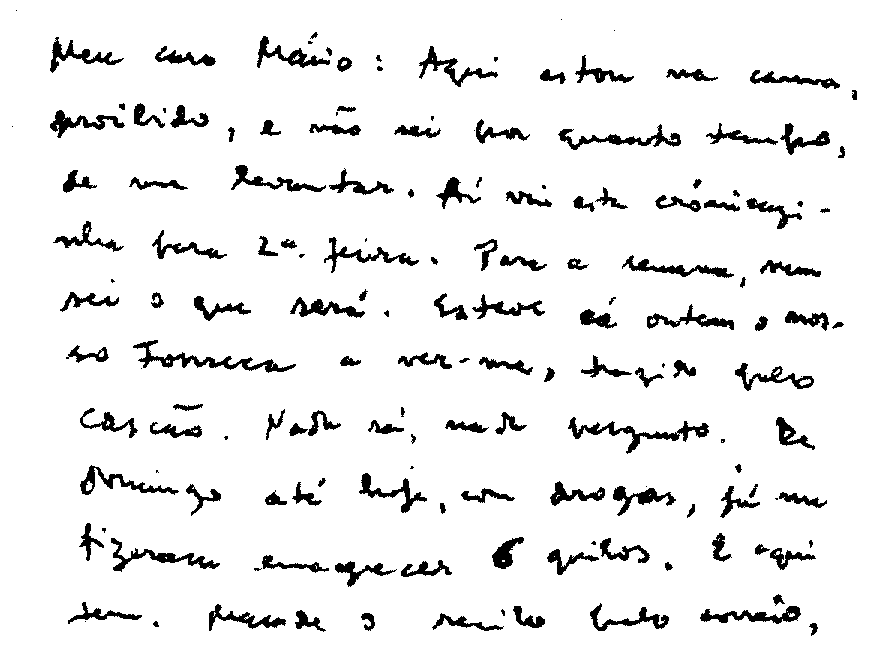 Meu caro Mário: Aqui estou na cama,
proibido, e não sei por quanto tempo,
de me levantar. Aí vai esta crónicazi-
nha para 2ª. feira. Para a semana, nem
sei o que será. Esteve cá ontem o nos-
so Fonseca a ver-me, trazido pelo
Cascão. Nada sei, nada pergunto. De
domingo até hoje, com drogas, já me
fizeram emagrecer 6 quilos. E aqui
tem. Mande o recibo pelo correio,